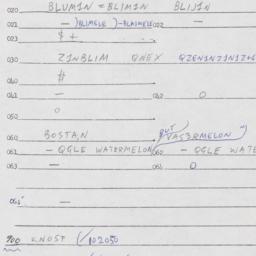 020 BLUMIN = BLIMIN BLIJIN
021 — ) BLIMELE ) - BLAIMELE 022 —
023 $ +
030 ZINBLIM QNEX
040 #
041 — 042 O
050 O
060 BOSTAN BUT VAS3RMELON "
061 - QGLE WATERMELON 062 - QGLE WATE
063 — 064 O
065 —
900 KNOST ( 102050